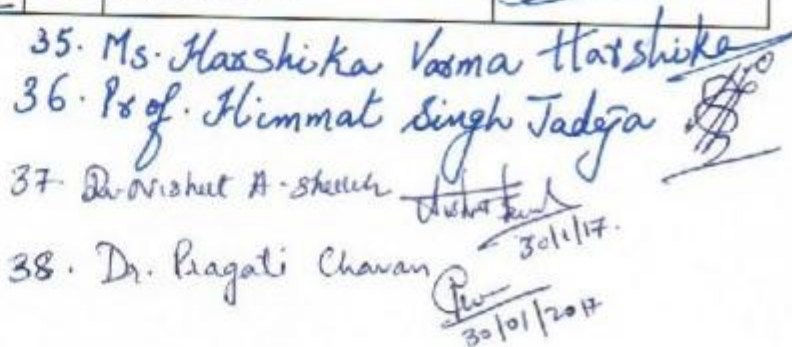 35. Ms. Harshika Varma Harshika
36. Prof. Himmat Singh Jadeja
37 Dr. Nishut A. Sheikh
30/1/17.
38. Dr. Pragati Chavan
30/01/2017